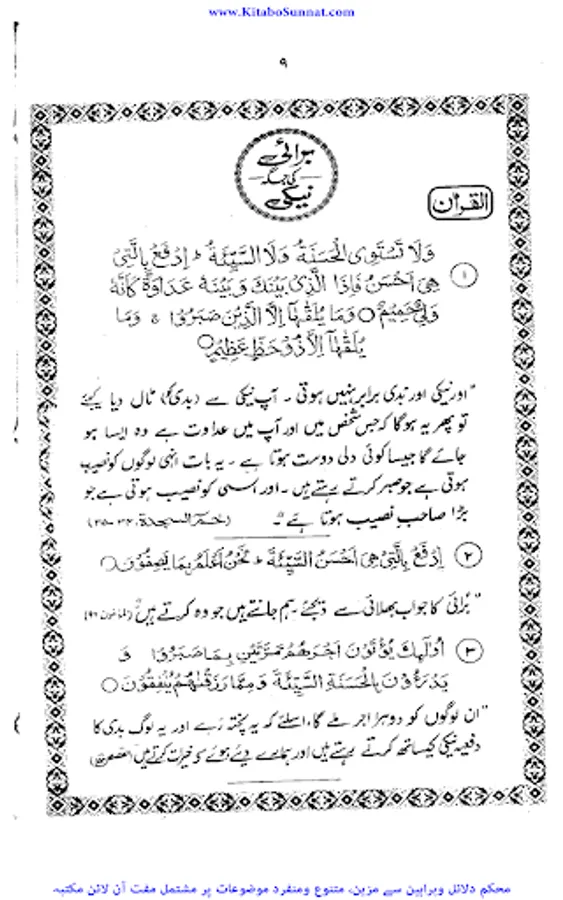 www.KitaboSunnat.com
۹
برائی
کی جگہ
نیکی
القرآن
۱ وَلَا تَسْتَوِی الْحَسَنَةُ وَلَا السَّیِّئَةُ ؕ اِدْفَعْ بِالَّتِیْ
هِیَ اَحْسَنُ فَاِذَا الَّذِیْ بَیْنَكَ وَبَیْنَهٗ عَدَاوَةٌ كَاَنَّهٗ
وَلِیٌّ حَمِیْمٌ ○ وَمَا یُلَقّٰىهَاۤ اِلَّا الَّذِیْنَ صَبَرُوْا ۚ وَمَا
یُلَقّٰىهَاۤ اِلَّا ذُوْ حَظٍّ عَظِیْمٍ ○
"اور نیکی اور بدی برابر نہیں ہوتی۔ آپ نیکی سے (بدی کو) ٹال دیا کیجئے
تو پھر یہ ہوگا کہ جس شخص میں اور آپ میں عداوت ہے وہ ایسا ہو
جائے گا جیسا کوئی دلی دوست ہوتا ہے۔ یہ بات انہی لوگوں کو نصیب
ہوتی ہے جو صبر کرتے رہتے ہیں۔ اور اسی کو نصیب ہوتی ہے جو
بڑا صاحب نصیب ہوتا ہے"۔ (حٰمٓ السجدة، ۳۴-۳۵)
۲ اِدْفَعْ بِالَّتِیْ هِیَ اَحْسَنُ السَّیِّئَةَ ؕ نَحْنُ اَعْلَمُ بِمَا یَصِفُوْنَ ○
"برائی کا جواب بھلائی سے دیجئے ہم جانتے ہیں جو وہ کرتے ہیں"
۳ اُولٰٓىِٕكَ یُؤْتَوْنَ اَجْرَهُمْ مَّرَّتَیْنِ بِمَا صَبَرُوْا وَ
یَدْرَءُوْنَ بِالْحَسَنَةِ السَّیِّئَةَ وَمِمَّا رَزَقْنٰهُمْ یُنْفِقُوْنَ ○
"ان لوگوں کو دوہرا اجر ملے گا، اسلئے کہ یہ پختہ رہے اور یہ لوگ بدی کا
دفعیہ نیکی کیساتھ کرتے رہتے ہیں اور ہمارے دیئے ہوئے کو خیرات کرتے ہیں
محکم دلائل وبراہین سے مزین، متنوع ومنفرد موضوعات پر مشتمل مفت آن لائن مکتبہ